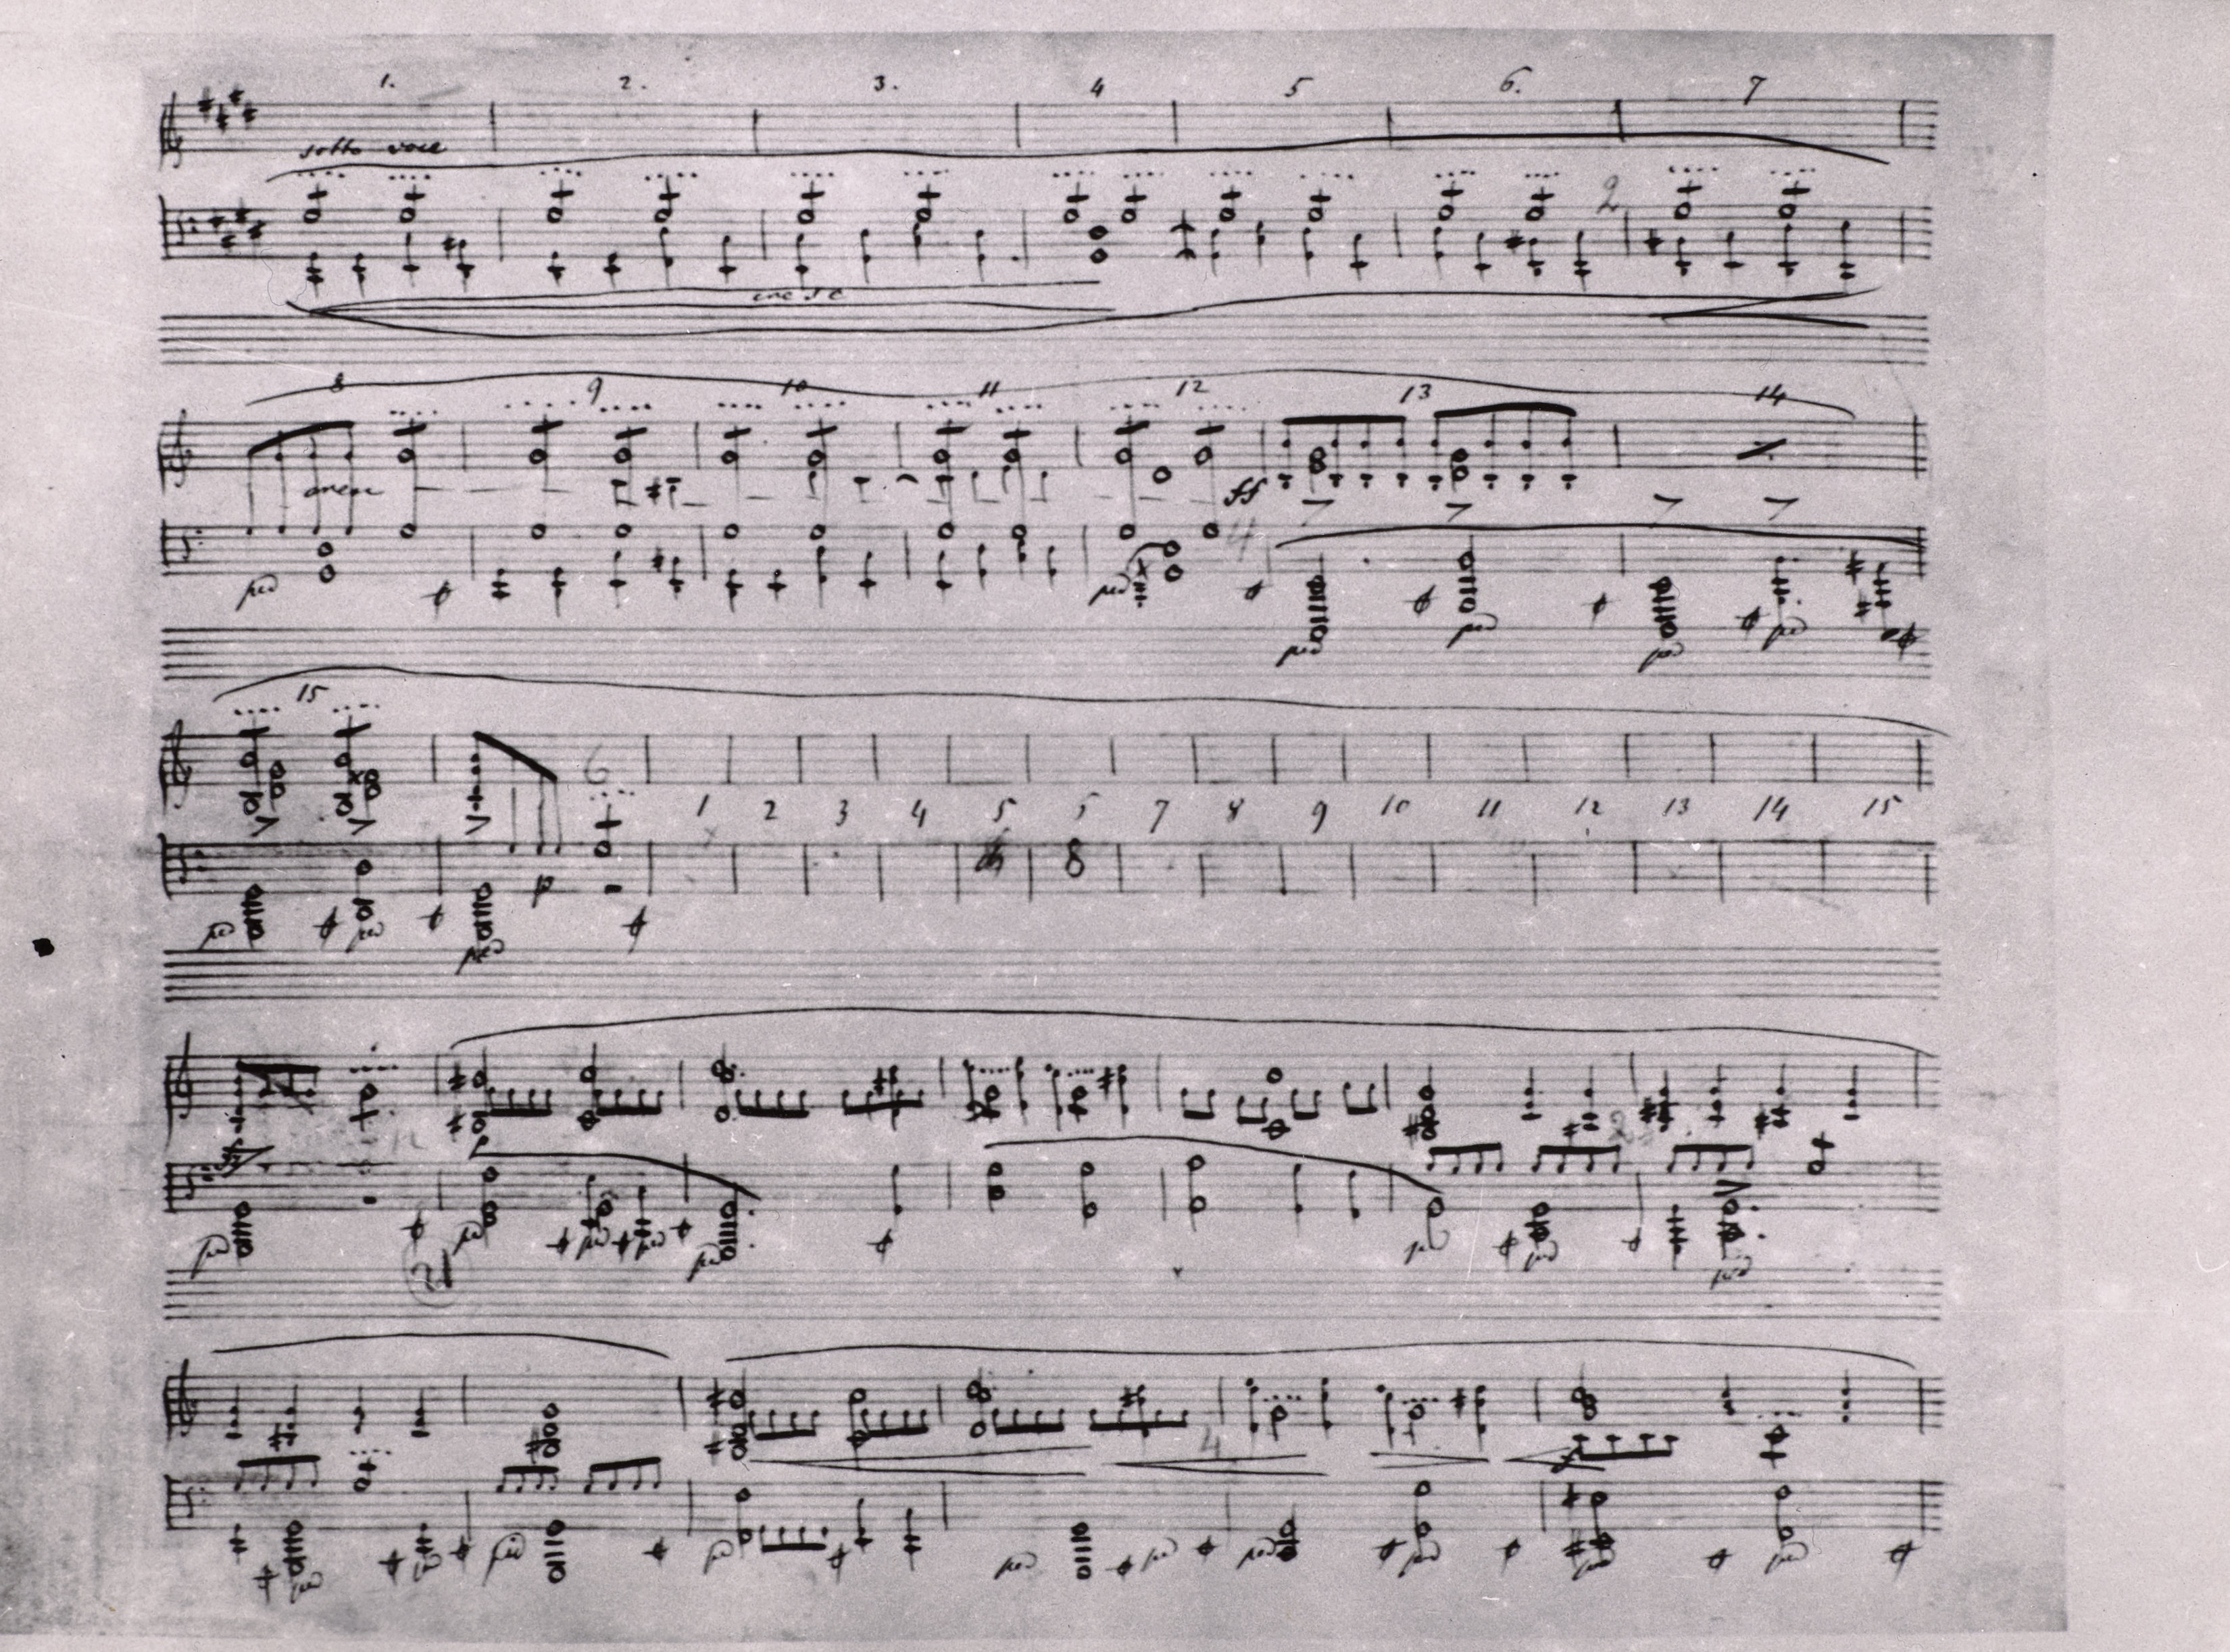 1. 2. 3. 4 5 6. 7
sotto voce
2
cresc
8 9 10 11 12 13 14
cresc
ff
4
ped ped
ped ped ped ped
15
6
1 2 3 4 5 5 7 8 9 10 11 12 13 14 15
8
p
ped ped
ped
2
ped ped ped ped ped ped ped ped
21
4
ped ped ped ped ped ped ped ped ped ped